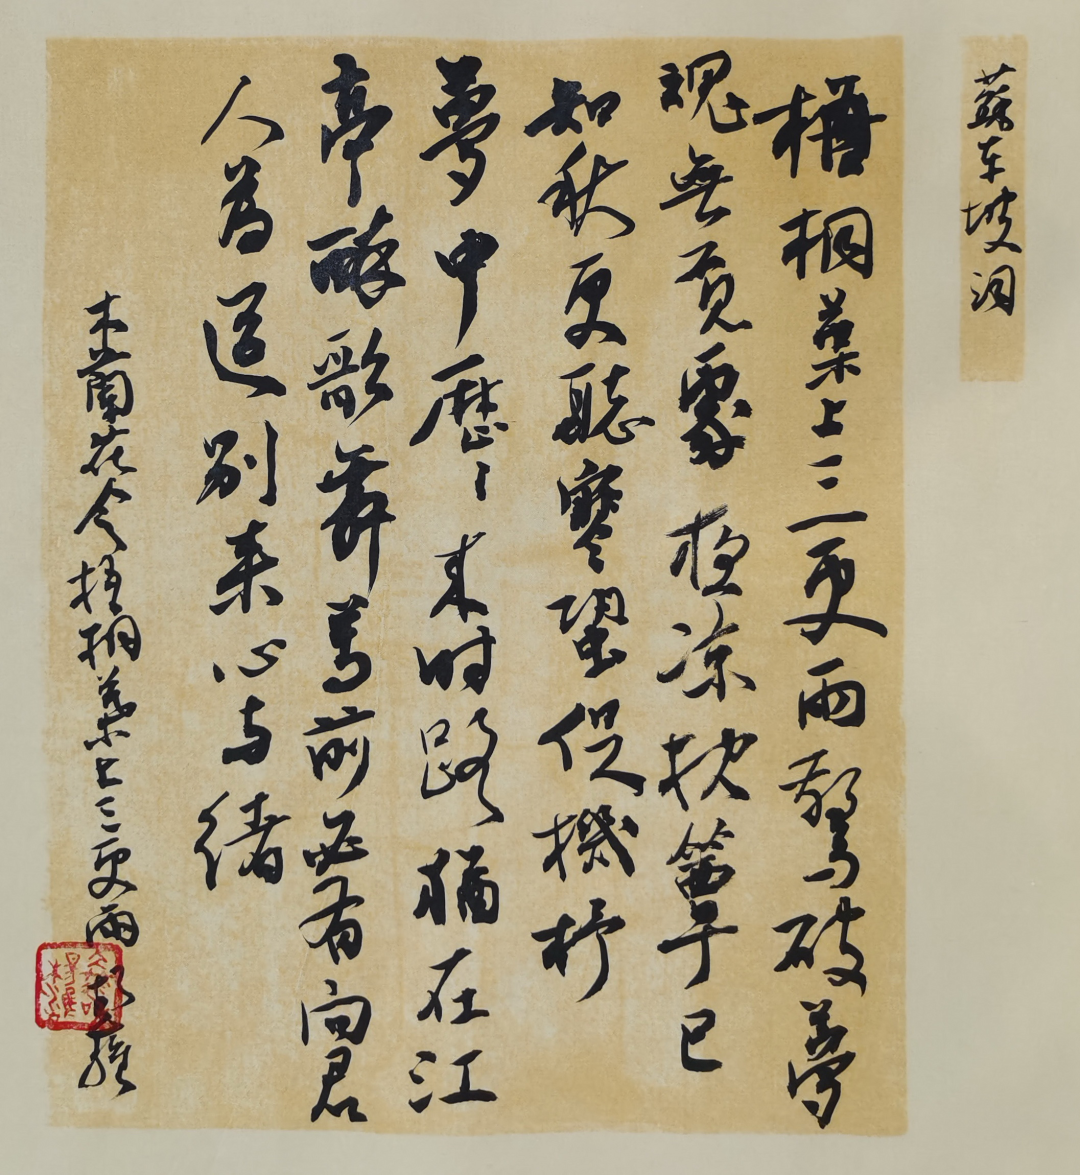 蘇东坡词
梧桐葉上三更雨驚破夢
魂無覓處夜凉枕簟已
知秋更聽寒蛩促機杼
夢中歷〻来时路猶在江
亭醉歌舞尊前必有问君
人為道别来心与緒
木蘭花令梧桐葉上三更雨